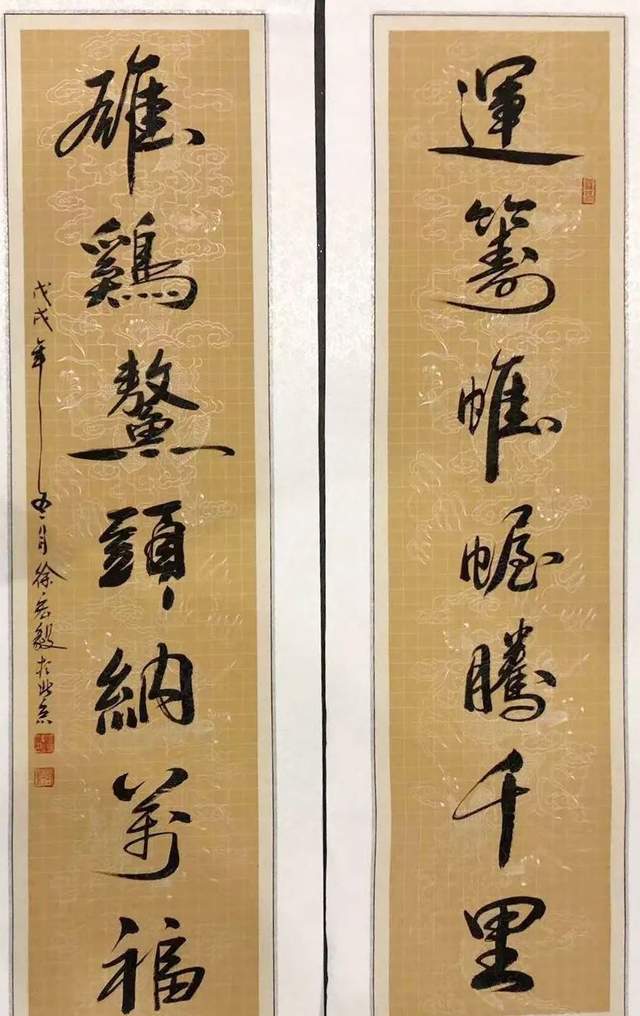 運籌帷幄騰千里
雄鷄鰲頭納萬福
戊戌年五月徐宏毅於北京